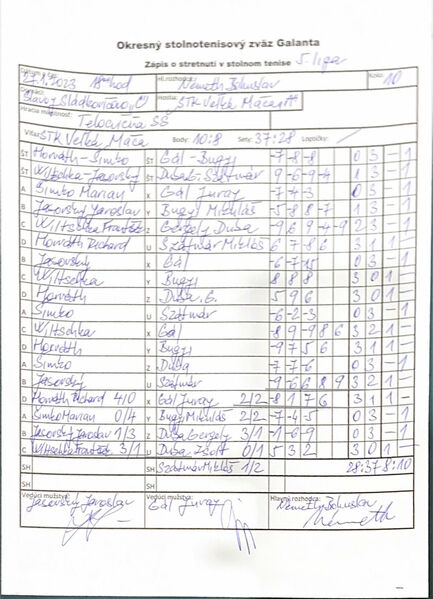 Okresný stolnotenisový zväz Galanta
Zápis o stretnutí v stolnom tenise 5. liga
Hl. rozhodca: Németh Bohuslav Kolo: 10
Hostia: STK Veľká Mača "A"
Hracia miestnosť: Telocvičňa SŠ
Víťaz: STK Veľká Mača Body: 10:8 Sety: 37:28 Loptičky:
ŠT Horváth - Simko ŠT Gál - Bugyi -7 -8 -8 0 3 - 1
ŠT Wiltschka - Jasovský ŠT Dusa G. Szatmár 9 -6 -9 -4 1 3 - 1
A Simko Marian X Gál Juraj -7 -4 -3 0 3 - 1
B Jasovský Jaroslav Y Bugyi Mikuláš -5 -8 8 -7 1 3 - 1
C Wiltschka František Z Gergely Dusa 2 3 - 1
D Horváth Richard U Szatmár Mikuláš 6 -7 8 6 3 1 1 -
B Jasovský X Gál 0 3 - 1
C Wiltschka Y Bugyi 8 8 8 3 0 1 -
D Horváth Z Dusa G. 5 9 6 3 0 1 -
A Simko U Szatmár -6 -2 -3 0 3 - 1
C Wiltschka X Gál -8 9 -9 8 6 3 2 1 -
D Horváth Y Bugyi -9 7 5 6 3 1 1 -
A Simko Z Dusa -7 -7 -6 0 3 - 1
B Jasovský U Szatmár -9 6 -6 8 9 3 2 1 -
D Horváth Richard 4/0 X Gál Juraj 2/2 -8 1 7 6 3 1 1 -
A Simko Marian 0/4 Y Bugyi Mikuláš 2/2 -7 -4 -5 0 3 - 1
B Jasovský Jaroslav 1/3 Z Dusa Gergely 3/1 0 3 - 1
C Wiltschka František 3/1 U Dusa Zsolt 0/1 5 3 2 3 0 1 -
SH SH Szatmár Mikuláš 1/2 28:37 8:10
SH SH
Vedúci mužstva: Vedúci mužstva: Hlavný rozhodca:
Jasovský Jaroslav Gál Juraj Németh Bohuslav
Németh